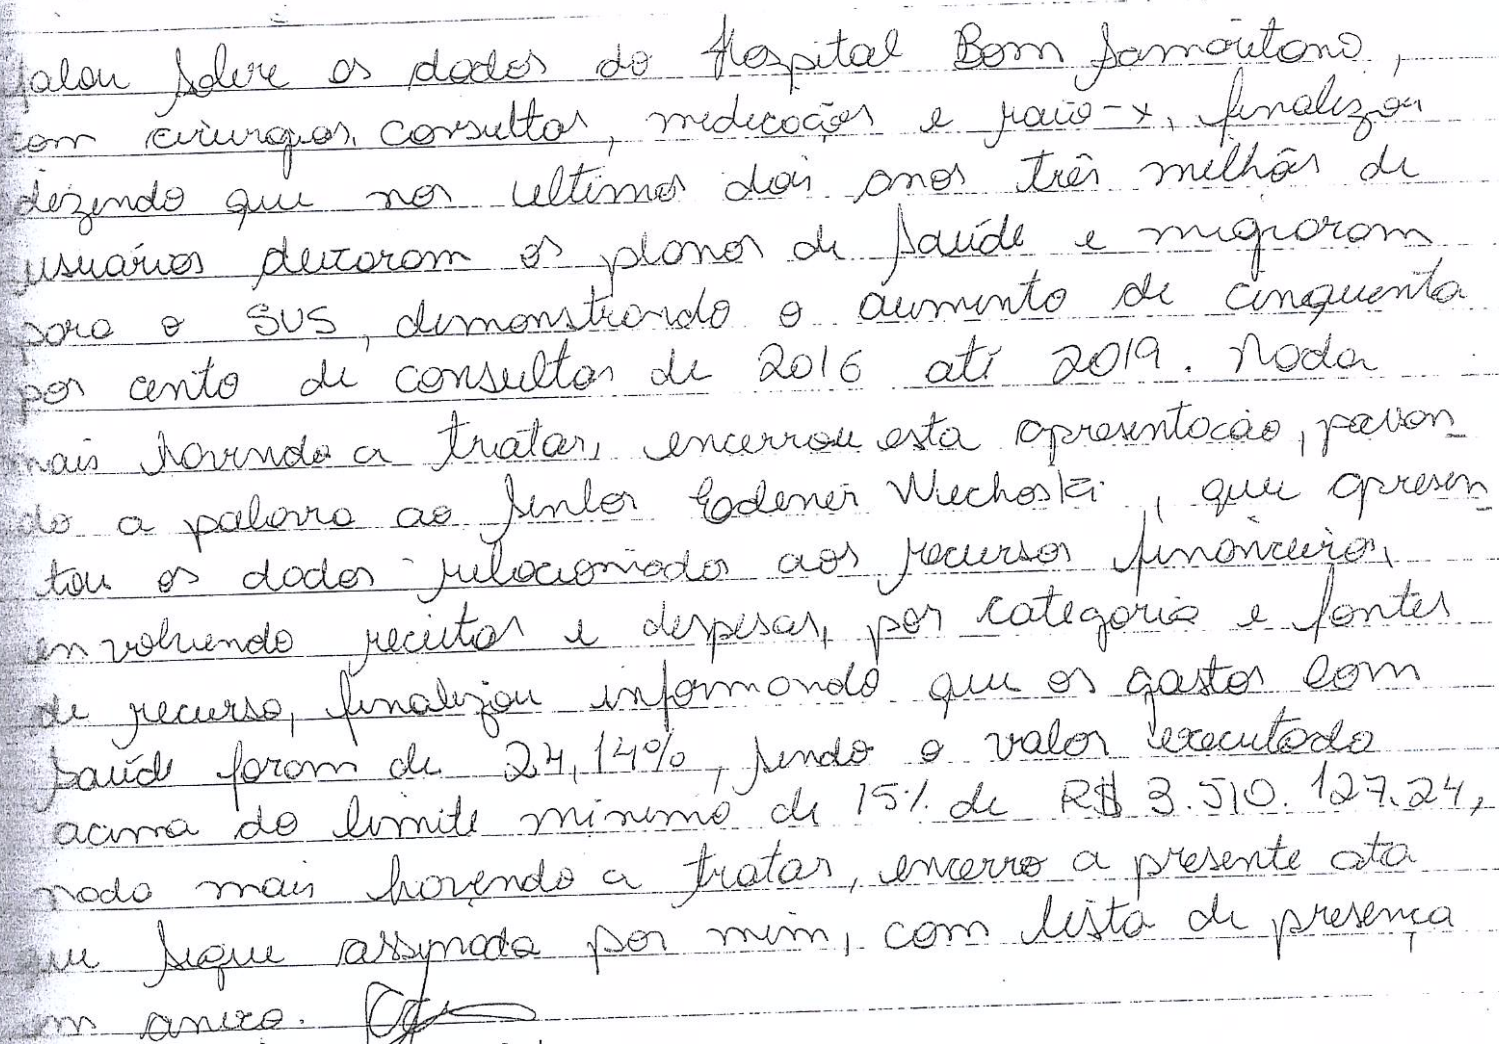 falou sobre os dados do Hospital Bom Samaritano,
com cirurgias, consultas, medicações e raio-x, finalizou
dizendo que nos ultimos dois anos três milhões de
usuários deixaram os planos de saúde e migraram
para o SUS, demonstrando o aumento de cinquenta
por cento de consultas de 2016 até 2019. Nada
mais havendo a tratar, encerrou esta apresentação, passan-
do a palavra ao senhor Edenei Wiechoski, que apresen-
tou os dados relacionados aos recursos financeiros,
envolvendo receitas e despesas, por categoria e fontes
de recurso, finalizou informando que os gastos com
saúde foram de 24,14%, sendo o valor executado
acima do limite minimo de 15% de R$ 3.510.127.24,
nada mais havendo a tratar, encerro a presente ata
que segue assinada por mim, com lista de presença
em anexo.